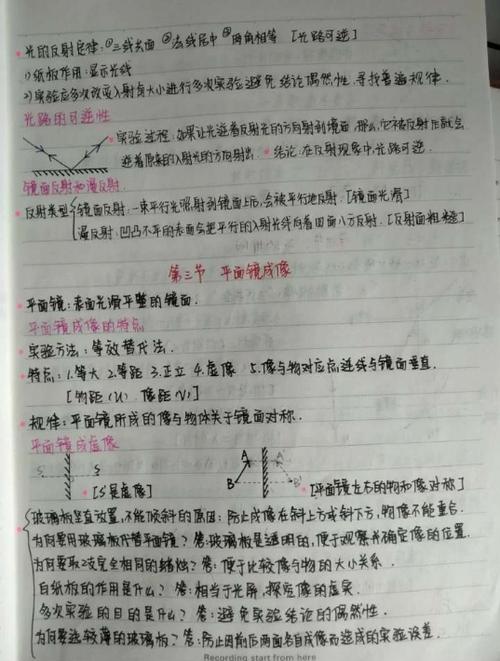 光的反射定律:①三线共面 ②法线居中 ③两角相等 [光路可逆]
1)纸板作用:显示光线
2)实验应多次改变入射角大小进行多次实验避免结论偶然性,寻找普遍规律.
光路的可逆性
实验过程:如果让光逆着反射光的方向射到镜面,那么,它被反射后就会
逆着原来的入射光的方向射出. 结论:在反射现象中,光路可逆.
镜面反射和漫反射.
反射类型 镜面反射:一束平行光照射到镜面上后,会被平行地反射.[镜面光滑]
漫反射:凹凸不平的表面会把平行的入射光线向着四面八方反射.[反射面粗糙]
第三节 平面镜成像
平面镜:表面光滑平整的镜面.
平面镜成像的特点
实验方法:等效替代法.
特点:1.等大 2.等距 3.正立 4.虚像 5.像与物对应点连线与镜面垂直.
[物距(u) 像距(v)]
规律:平面镜所成的像与物体关于镜面对称.
平面镜成虚像
S' S
[S'是虚像]
A A'
B B'
[平面镜左右的物和像对称]
玻璃板竖直放置,不能倾斜的原因:防止成像在斜上方或斜下方,物像不能重合.
为何要用玻璃板代替平面镜?答:玻璃板是透明的,便于观察并确定像的位置.
为何要取2支完全相同的蜡烛?答:便于比较像与物的大小关系.
白纸板的作用是什么?答:相当于光屏,探究像的虚实.
多次实验的目的是什么?答:避免实验结论的偶然性.
为何要选较薄的玻璃板?答:防止因前后两面各自成像而造成的实验误差.
Recording start from here